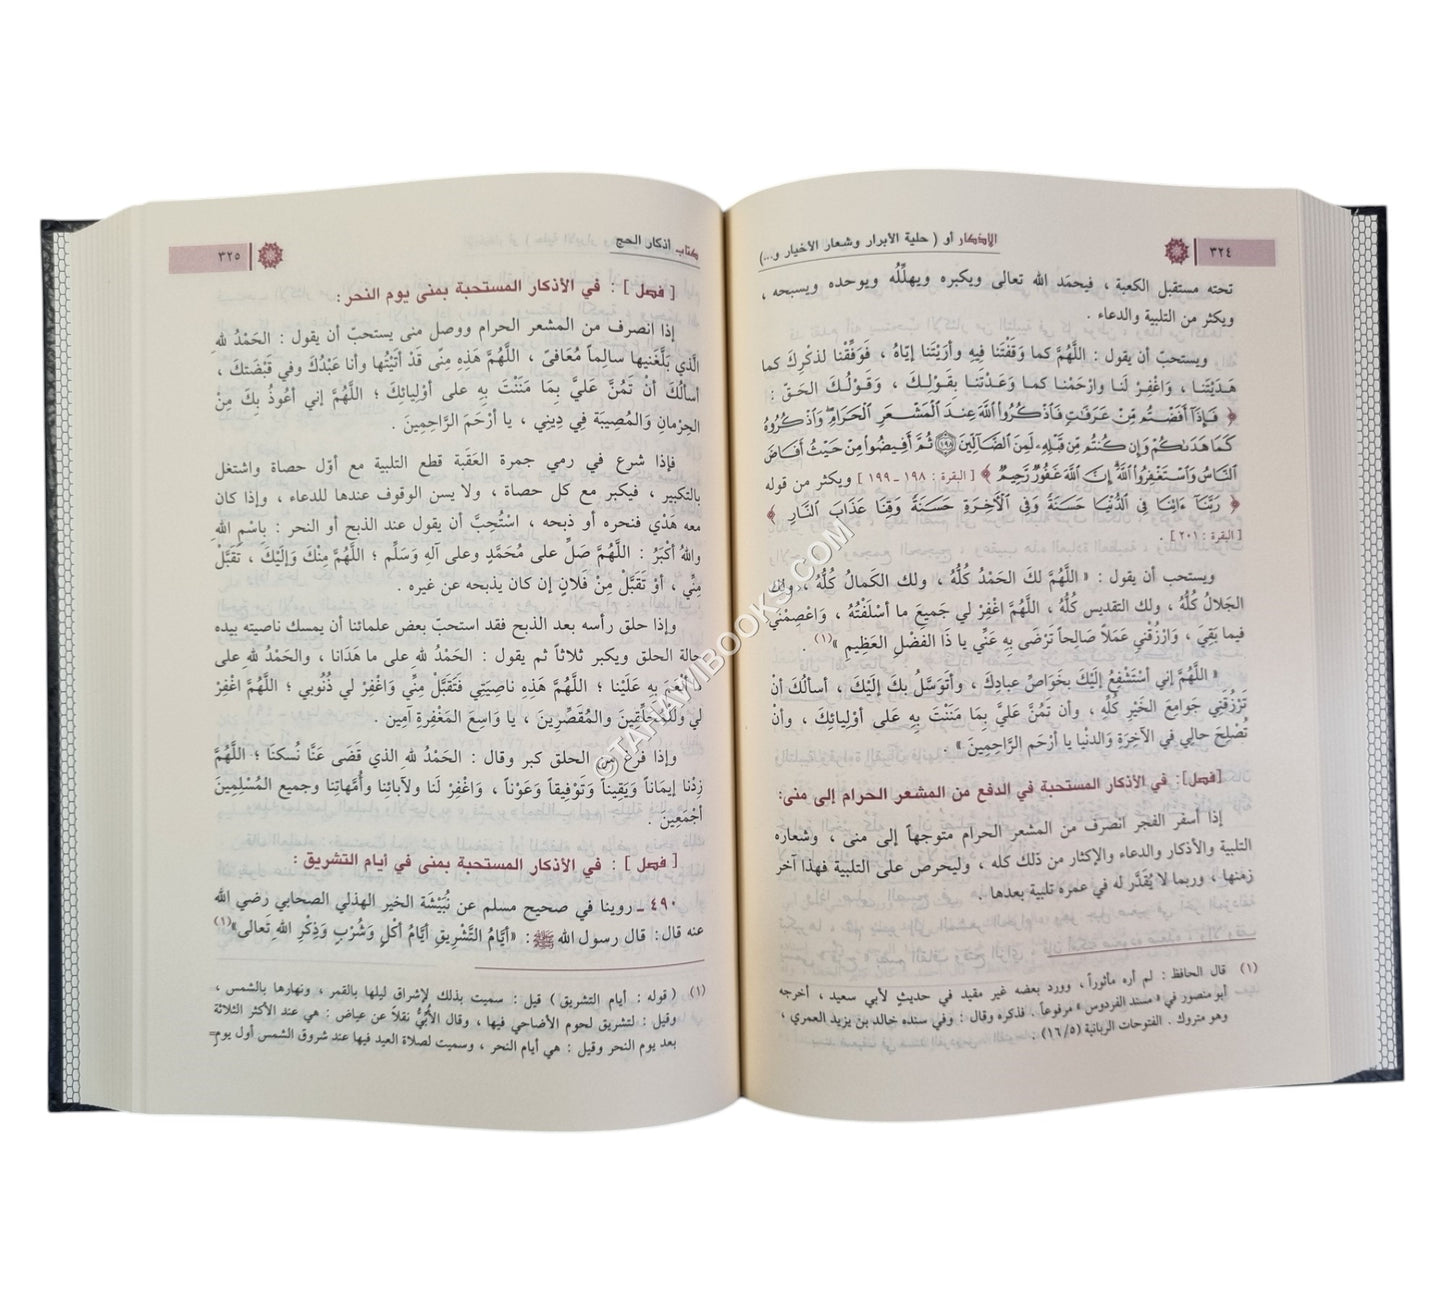 ٣٢٤
الأذكار أو ( حلية الأبرار وشعار الأخيار و...)
تحته مستقبل الكعبة ، فيحمَد الله تعالى ويكبره ويهلِّلُه ويوحده ويسبحه ،
ويكثر من التلبية والدعاء .
ويستحبّ أن يقول : اللَّهُمَّ كما وَقَفْتَنا فِيهِ وأرَيْتَنا إيَّاهُ ، فَوَفِّقْنا لذكْرِكَ كما
هَدَيْتَنا ، وَاغْفِرْ لَنا وارْحَمْنا كما وَعَدْتَنا بِقَوْلِكَ ، وَقَوْلُكَ الحَقّ :
﴿ فَإِذَآ أَفَضْتُم مِّنْ عَرَفَٰتٍ فَاذْكُرُوا۟ اللَّهَ عِندَ الْمَشْعَرِ الْحَرَامِ ۖ وَاذْكُرُوهُ
كَمَا هَدَىٰكُمْ وَإِن كُنتُم مِّن قَبْلِهِۦ لَمِنَ الضَّآلِّينَ ۝١٩٨ ثُمَّ أَفِيضُوا۟ مِنْ حَيْثُ أَفَاضَ
النَّاسُ وَاسْتَغْفِرُوا۟ اللَّهَ ۚ إِنَّ اللَّهَ غَفُورٌ رَّحِيمٌ ﴾ [ البقرة : ١٩٨ ـ ١٩٩ ] ويكثر من قوله
﴿ رَبَّنَآ ءَاتِنَا فِى الدُّنْيَا حَسَنَةً وَفِى الْآخِرَةِ حَسَنَةً وَقِنَا عَذَابَ النَّارِ ﴾
[ البقرة : ٢٠١ ] .
ويستحب أن يقول : « اللَّهُمَّ لكَ الحَمْدُ كُلُّهُ ، ولك الكَمالُ كُلُّهُ ، ولك
الجَلالُ كُلُّهُ ، ولك التقديس كُلُّهُ ، اللَّهُمَّ اغْفِرْ لي جَمِيعَ ما أسْلَفْتُهُ ، وَاعْصِمْنِي
فيما بَقِيَ ، وَارْزُقْنِي عَمَلاً صَالِحاً تَرْضَى بِهِ عَنِّي يا ذَا الفضْلِ العَظِيمِ »(١) .
« اللَّهُمَّ إني أسْتَشْفِعُ إلَيْكَ بِخَوَاصِّ عبادِكَ ، وأتَوَسَّل بكَ إلَيْكَ ، أسألُكَ أنْ
تَرْزُقَنِي جَوامِعَ الخَيْرِ كُلِّهِ ، وأن تَمُنَّ عَلَيَّ بِمَا مَنَنْتَ بِهِ عَلَى أوْلِيائِكَ ، وأنْ
تُصْلِحَ حالي في الآخِرَةِ وَالدنْيا يا أرْحَم الرَّاحِمِينَ » .
[فصل]: في الأذكار المستحبة في الدفع من المشعر الحرام إلى منى:
إذا أسفر الفجر انصرف من المشعر الحرام متوجهاً إلى منى ، وشعاره
التلبية والأذكار والدعاء والإكثار من ذلك كله ، وليحرص على التلبية فهذا آخر
زمنها ، وربما لا يُقَدَّر له في عمره تلبية بعدها .
(١) قال الحافظ : لم أره مأثوراً ، وورد بعضه غير مقيد في حديثٍ لأبي سعيد ، أخرجه
أبو منصور في « مسند الفردوس » مرفوعاً . فذكره وقال : وفي سنده خالد بن يزيد العمري ،
وهو متروك . الفتوحات الربانية (١٦/٥) .
كتاب أذكار الحج
٣٢٥
[ فصل ] : في الأذكار المستحبة بمنى يوم النحر:
إذا انصرف من المشعر الحرام ووصل منى يستحبّ أن يقول : الحَمْدُ للهِ
الَّذي بَلَّغَنِيها سالِماً مُعَافىً ، اللَّهُمَّ هَذِهِ مِنًى قَدْ أتَيْتُها وأنا عَبْدُكَ وفي قَبْضَتكَ ،
أسألُكَ أنْ تَمُنَّ عَليَّ بِمَا مَنَنْتَ بِهِ على أوْلِيائِكَ ؛ اللَّهُمَّ إني أعُوذُ بِكَ مِنْ
الحِرْمانِ وَالمُصِيبَة فِي دِينِي ، يا أرْحَمَ الرَّاحِمِينَ .
فإذا شرع في رمي جمرة العَقَبة قطع التلبية مع أوّل حصاة واشتغل
بالتكبير ، فيكبر مع كل حصاة ، ولا يسن الوقوف عندها للدعاء ، وإذا كان
معه هَدْي فنحره أو ذبحه ، اسْتُحِبَّ أن يقول عند الذبح أو النحر : باسْمِ اللهِ
واللهُ أكْبَرُ : اللَّهُمَّ صَلِّ على مُحَمَّدٍ وعلى آلِهِ وَسَلِّم ؛ اللَّهُمَّ مِنْكَ وَإلَيْكَ ، تَقَبَّلْ
مِنِّي ، أوْ تَقَبَّلْ مِنْ فَلانٍ إن كان يذبحه عن غيره .
وإذا حلق رأسه بعد الذبح فقد استحبّ بعض علمائنا أن يمسك ناصيته بيده
حالة الحلق ويكبر ثلاثاً ثم يقول : الحَمْدُ للهِ على ما هَدَانا ، والحَمْدُ للهِ على
ما أنْعَمَ بِهِ عَلَيْنا ؛ اللَّهُمَّ هَذِهِ ناصِيَتِي فَتَقَبَّلْ مِنِّي وَاغْفِرْ لي ذُنُوبي ؛ اللَّهُمَّ اغْفِرْ
لي وللْمُحَلِّقِينَ والمُقَصِّرِينَ ، يا وَاسِعَ المَغْفِرةِ آمِينَ .
وإذا فرغ من الحلق كبر وقال : الحَمْدُ للهِ الذي قَضَى عَنَّا نُسكنَا ؛ اللَّهُمَّ
زِدْنا إيمَاناً وَيَقِيناً وَتَوْفِيقاً وَعَوْناً ، وَاغْفِرْ لَنا ولآبائِنا وأُمَّهاتِنا وجميع المُسْلِمِينَ
أجْمَعِينَ .
[ فصل ] : في الأذكار المستحبة بمنى في أيام التشريق :
٤٩٠ ـ روينا في صحيح مسلم عن نُبَيْشَة الخير الهذلي الصحابي رضي الله
عنه قال: قال رسول الله ﷺ : «أيَّامُ التَّشْرِيقِ أيَّامُ أكْلٍ وَشُرْبٍ وَذِكْرِ اللهِ تَعالى»(١)
(١) ( قوله : أيام التشريق ) قيل : سميت بذلك لإشراق ليلها بالقمر ، ونهارها بالشمس ،
وقيل : لتشريق لحوم الأضاحي فيها ، وقال الأُبِّيُّ نقلاً عن عياض : هي عند الأكثر الثلاثة
بعد يوم النحر وقيل : هي أيام النحر ، وسميت لصلاة العيد فيها عند شروق الشمس أول يوم=
©TAHAMIBOOKS.COM